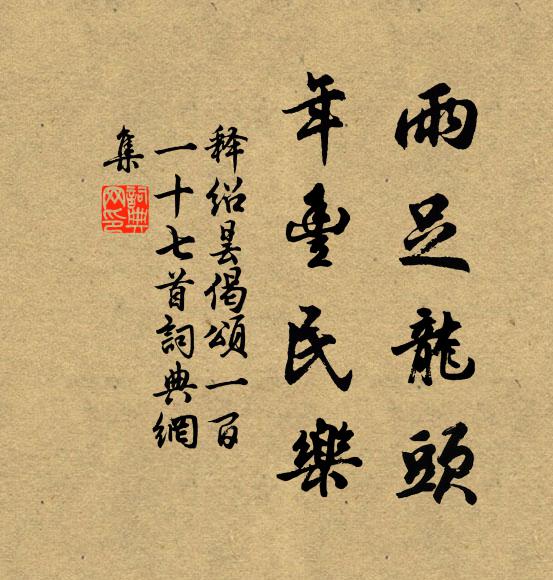 雨足龍頭
年豐民樂
释绍昙偈頌一百
一十七首詞典網
集
詞典
网印